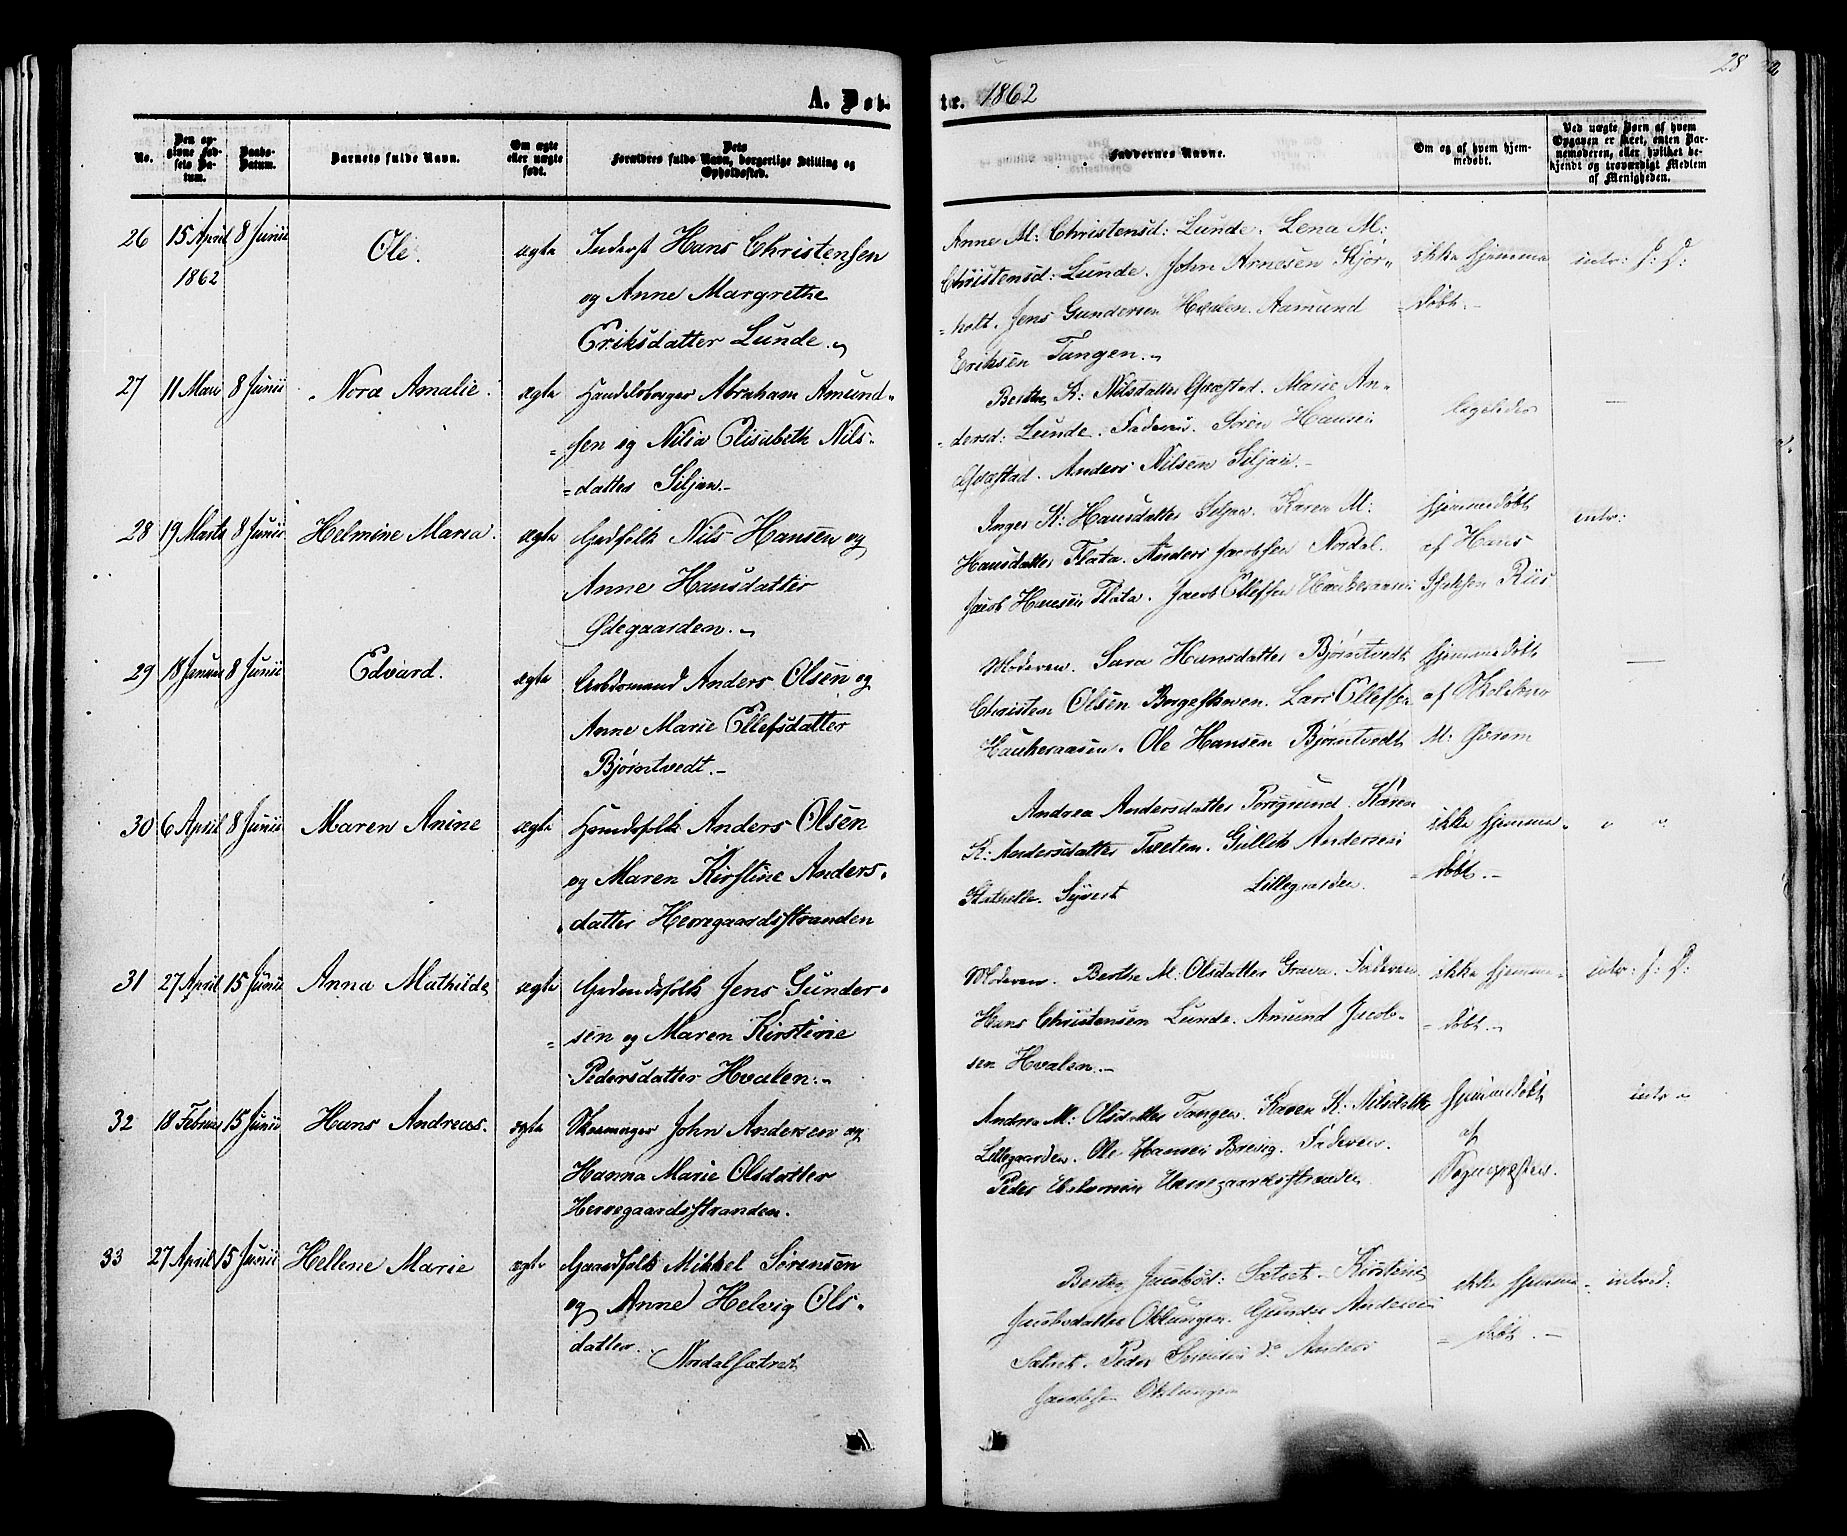 28
A. Døb-
te. 1862
No.
Den op-
givne Fød-
sels Da-
tum.
Daabs-
Datum.
Barnets fulde Navn.
Om ægte
eller uægte
født.
Dets
Forældres fulde Navn, borgerlige Stilling og
Opholdssted.
Faddernes Navne.
Om og af hvem hjem-
medøbt.
Ved uægte Børn af hvem
Opgaven er skeet, enten Bar-
nemoderen, eller hvilket be-
kjendt og troværdigt Medlem
af Menigheden.
26
15 April
1862
8 Junii
Ole.
ægte
Inderst Hans Christensen
og Anne Margrethe
Eriksdatter Lunde.
Anne M: Christensd: Lunde. Lena M:
Christensd: Lunde. John Arnesen Kjør-
holt. Jens Gundersen Hvalen. Aamund
Eriksen Tangen.
ikke hjemme
døbt.
intr:
27
11 Mars
8 Junii
Nora Amalie.
ægte
Handelsborger Abraham Amund-
sen og Nilia Elisabeth Nils-
datter Siljan.
Berthe K: Nilsdatter Marie An-
dersd: Lunde. Faderen. Søren Hansen
Anders Nilsen Siljan.
ligeledes
28
19 Marts
8 Junii
Helmine Maria.
ægte
Nils Hansen og
Anne Hansdatter
Ødegaarden.
Inger K: Hansdatter Karen M:
Hansdatter Flata. Anders Jacobsen Nordal.
Jacob Hansen Flata. Jacob Ellefsen Haukeraasen
hjemmedøbt
af Hans
Riis
intr:
29
18 Januar
8 Junii
Edvard.
ægte
Arbdsmand Anders Olsen og
Anne Marie Ellefsdatter
Bjørntvedt.
Moderen. Sara Hansdatter Bjørntvedt
Christen Olsen Borgeskoven. Lars Ellefsen
Haukeraasen. Ole Hansen Bjørntvedt
hjemmedøbt
af
30
6 April
8 Junii
Maren Anine
ægte
Huusfolk Anders Olsen
og Maren Kirstine Anders-
datter Herregaardsstranden
Andrea Andersdatter Porsgrund. Karen
K: Andersdatter Tveten. Gullik Andersen
Stathelle. Syvert Lillegaarden.
ikke hjemme-
døbt.
31
27 April
15 Junii
Anna Mathilde
ægte
Jens Gunder-
sen og Maren Kirstine
Pedersdatter Hvalen.
Moderen. Berthe M: Olsdatter Grava. Faderen
Hans Christensen Lunde. Amund Jacob-
sen Hvalen.
ikke hjemme-
døbt.
intr:
32
18 Februar
15 Junii
Hans Andreas.
ægte
Skomager John Andersen og
Hanna Marie Olsdatter
Herregaardsstranden.
Andrea M: Olsdatter Tangen. Karen K: Nilsdatter
Lillegaarden. Ole Hansen Brevig. Faderen.
Peder Herregaardsstranden
hjemmedøbt
af
Sognepræsten.
intr
33
27 April
15 Junii
Hellene Marie
ægte
Gaardfolk Mikkel Sørensen
og Anne Helvig Ols-
datter.
Nordalsætret
Berthe Jacobsd: Sætret. Kirstine
Jacobsdatter Oklungen. Gunder Andersen
Sætret. Peder Sørensen do Anders
Jacobsen Oklungen
ikke hjemme-
døbt.
introd: